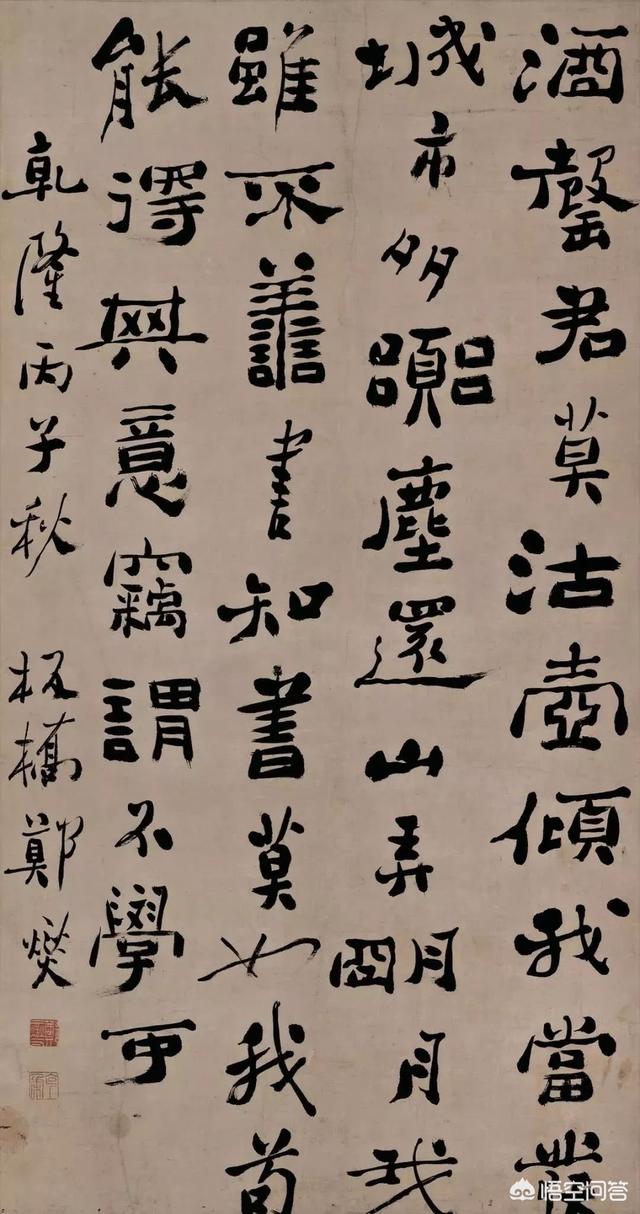 酒罄君莫沽壺傾我當發
城市多囂塵還山弄明月我
雖不善書知書莫如我苟
能得其意竊謂不學可
乾隆丙子秋 板橋鄭燮
悟空问答